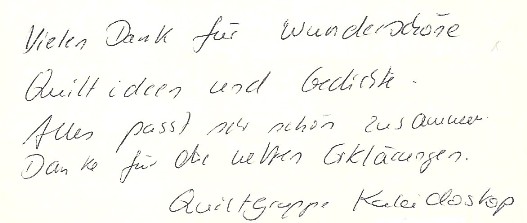 Vielen Dank für wunderschöne
Quiltideen und Gedichte.
Alles passt sehr schön zusammen.
Danke für die netten Erklärungen.
Quiltgruppe Kaleidoskop